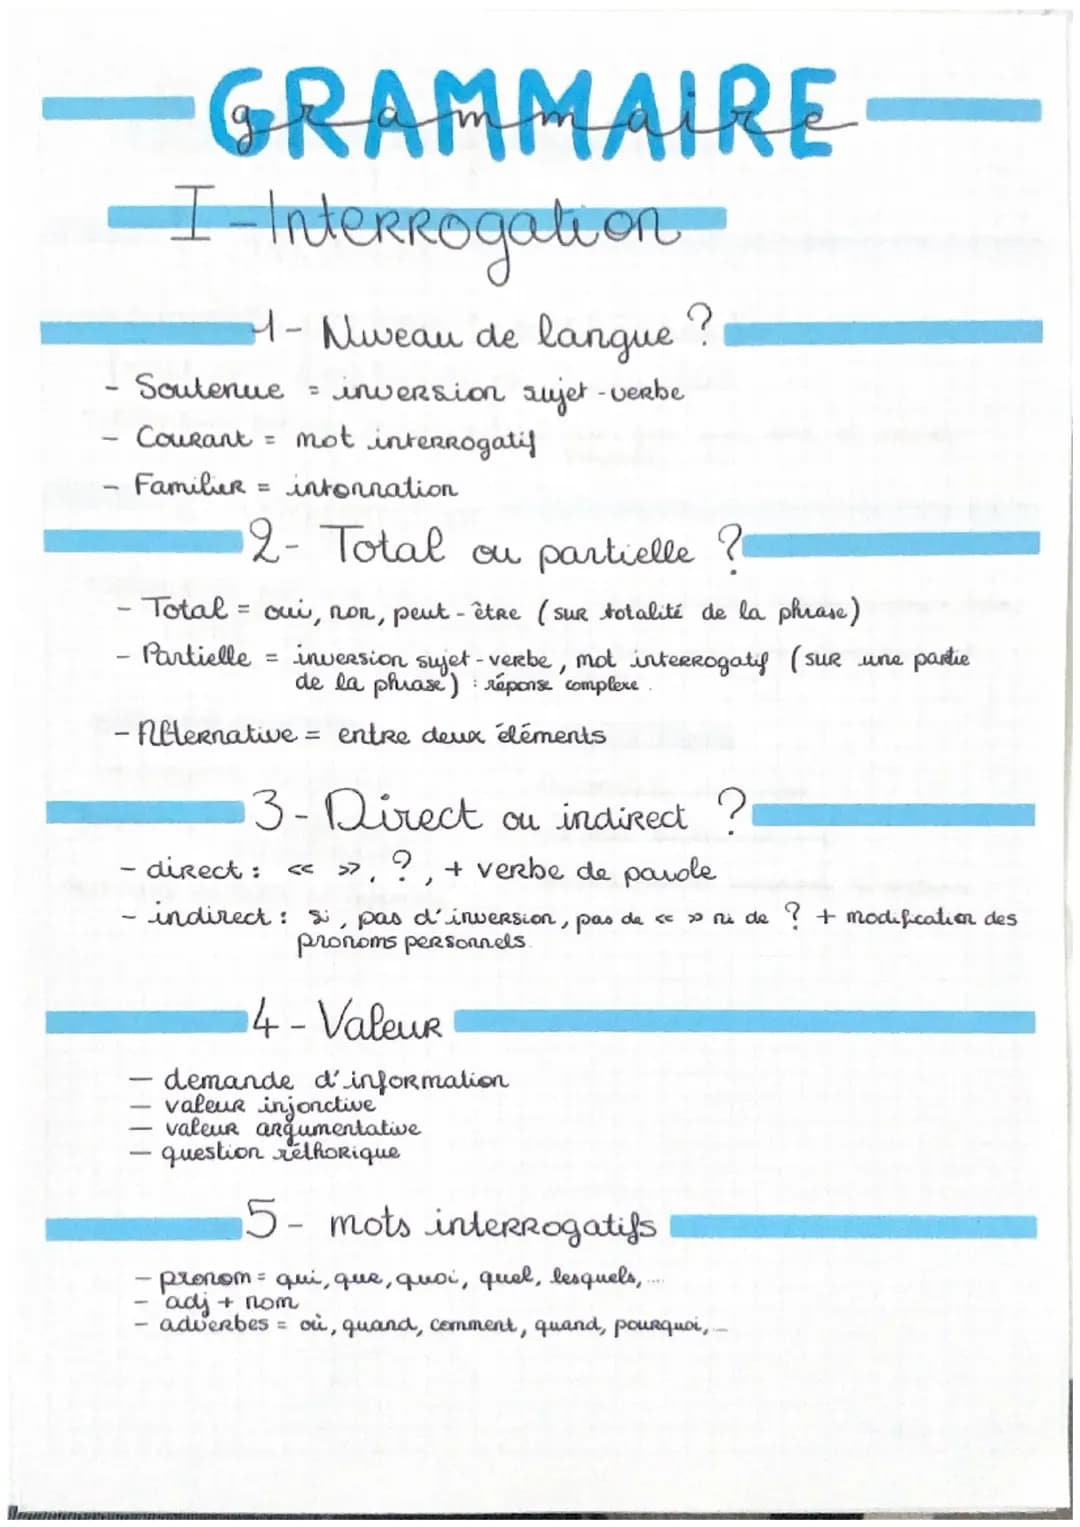 GRAMMAIRE
grammaire
I - Interrogation
1 - Niveau de langue ?
- Soutenue = inversion sujet - verbe
- Courant = mot interrogatif
- Familier = intonnation
2 - Total ou partielle ?
- Total = oui, non, peut - être (sur totalité de la phrase)
- Partielle = inversion sujet - verbe, mot interrogatif (sur une partie
de la phrase) : réponse complexe.
- Alternative = entre deux éléments
3 - Direct ou indirect ?
- direct : << >>, ?, + verbe de parole
- indirect : si, pas d'inversion, pas de << >> ni de ? + modification des
pronoms personnels.
4 - Valeur
- demande d'information
- valeur injonctive
- valeur argumentative
- question réthorique
5 - mots interrogatifs
- pronom = qui, que, quoi, quel, lesquels, ...
- adj + nom
- adverbes = où, quand, comment, quand, pourquoi, ...